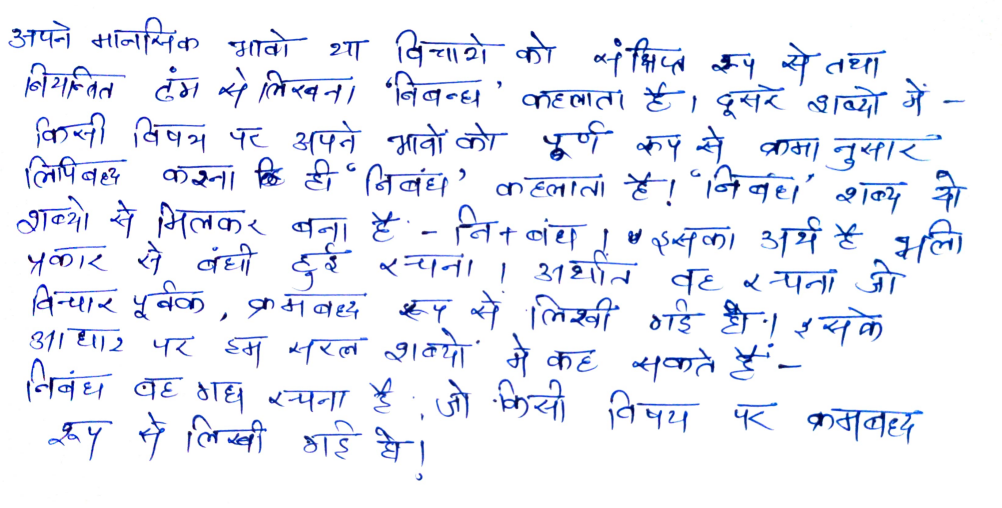 अपने मानसिक भावो या विचारो को संक्षिप्त रूप से तथा
नियन्त्रित ढंग से लिखना 'निबन्ध' कहलाता है। दूसरे शब्दो में -
किसी विषय पर अपने भावों को पूर्ण रूप से क्रमानुसार
लिपिबध्द करना ही 'निबंध' कहलाता है। 'निबंध' शब्द दो
शब्दो से मिलकर बना है - नि + बंध। इसका अर्थ है भलि
प्रकार से बंधी हुई रचना। अर्थात वह रचना जो
विचार पूर्वक, क्रमबध्द रूप से लिखी गई हो। इसके
आधार पर हम सरल शब्दों में कह सकते हैं -
निबंध वह गद्य रचना है, जो किसी विषय पर क्रमबध्द
रूप से लिखी गई हो।